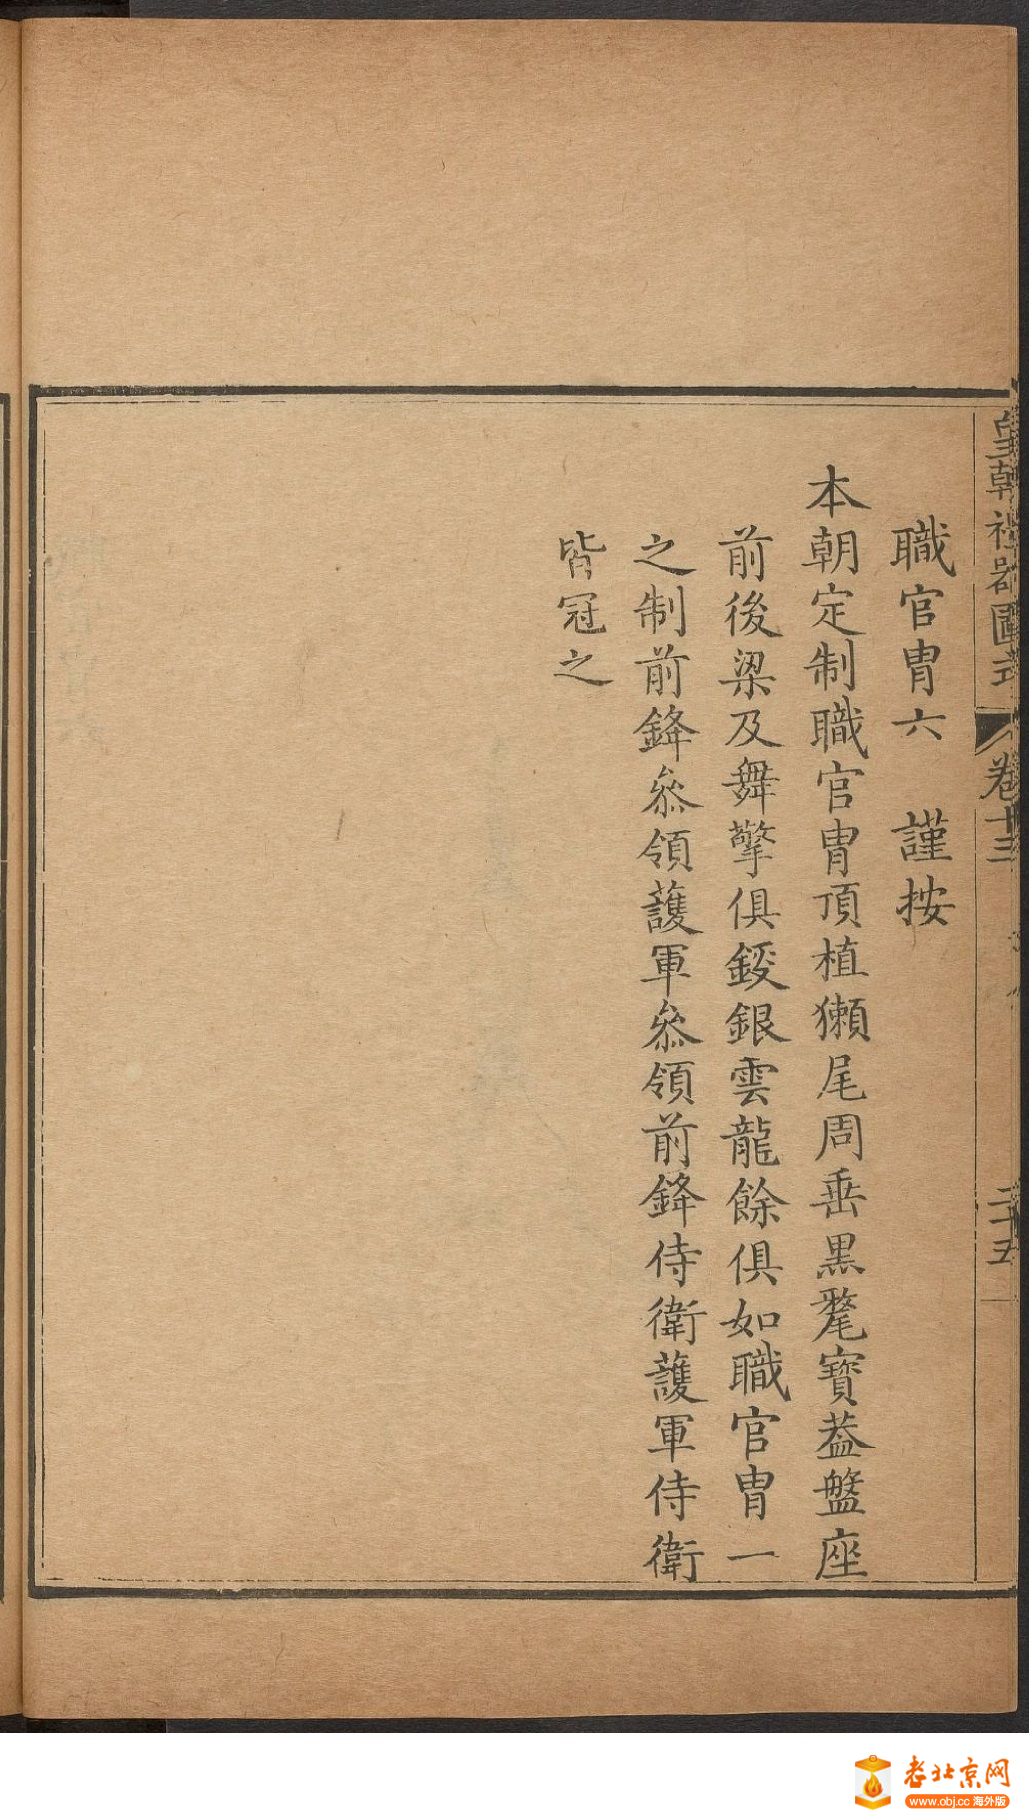 皇朝禮器圖式
卷十三
二十五
職官胄六　謹按
本朝定制職官胄頂植獺尾周垂黑氂寶葢盤座
前後梁及舞擎俱鋄銀雲龍餘俱如職官胄一
之制前鋒叅領護軍叅領前鋒侍衛護軍侍衛
皆冠之
老北京网
www.obj.cc 海外版